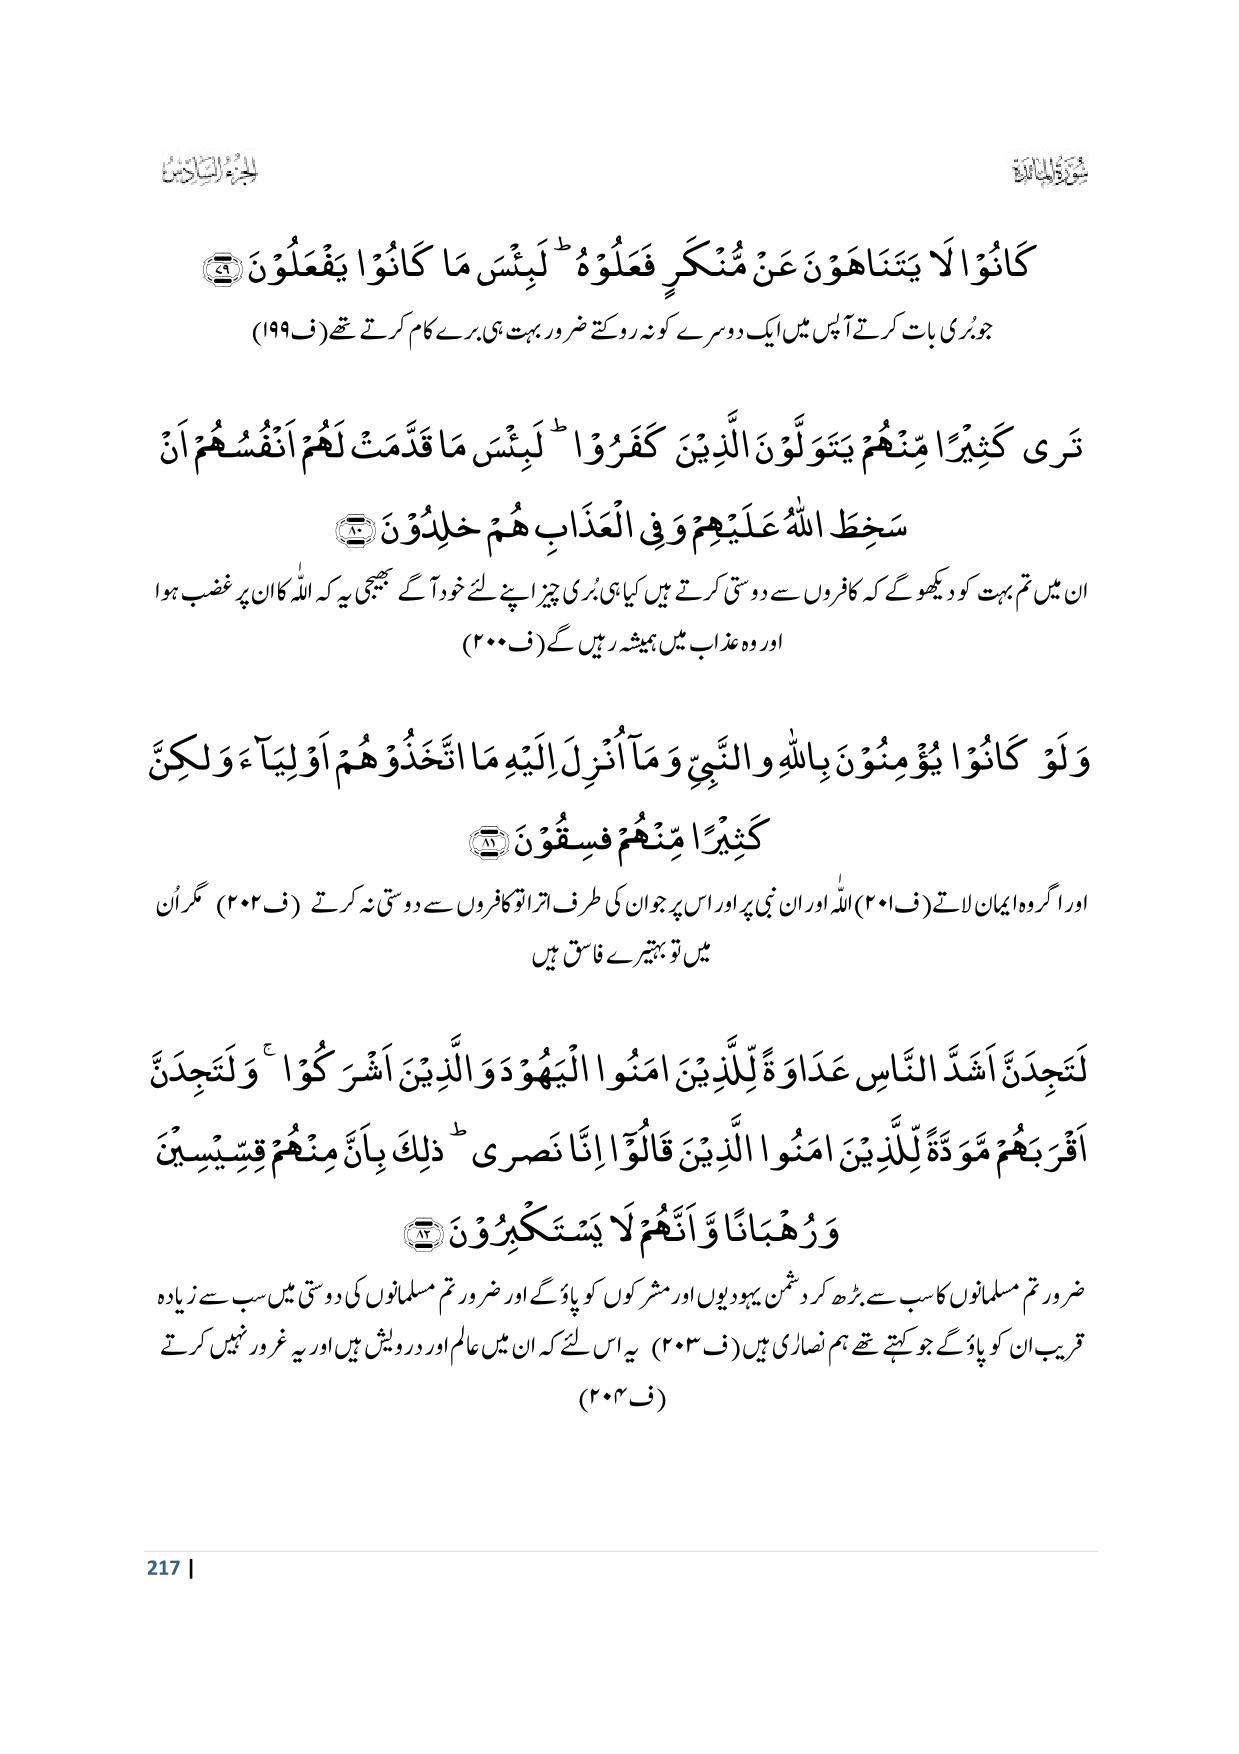 سُوۡرَةُ المَائدة
الجزءُ السَّادس
کَانُوۡا لَا یَتَنَاهَوۡنَ عَنۡ مُّنۡکَرٍ فَعَلُوۡهُ ؕ لَبِئۡسَ مَا کَانُوۡا یَفۡعَلُوۡنَ ﴿۷۹﴾
جو بُری بات کرتے آپس میں ایک دوسرے کو نہ روکتے ضرور بہت ہی برے کام کرتے تھے(ف۱۹۹)
تَرٰی کَثِیۡرًا مِّنۡهُمۡ یَتَوَلَّوۡنَ الَّذِیۡنَ کَفَرُوۡا ؕ لَبِئۡسَ مَا قَدَّمَتۡ لَهُمۡ اَنۡفُسُهُمۡ اَنۡ
سَخِطَ اللهُ عَلَیۡهِمۡ وَ فِی الۡعَذَابِ هُمۡ خٰلِدُوۡنَ ﴿۸۰﴾
ان میں تم بہت کو دیکھو گے کہ کافروں سے دوستی کرتے ہیں کیا ہی بُری چیز اپنے لئے خود آگے بھیجی یہ کہ اللہ کا ان پر غضب ہوا
اور وہ عذاب میں ہمیشہ رہیں گے(ف۲۰۰)
وَ لَوۡ کَانُوۡا یُؤۡمِنُوۡنَ بِاللهِ والنَّبِیِّ وَ مَاۤ اُنۡزِلَ اِلَیۡهِ مَا اتَّخَذُوۡهُمۡ اَوۡلِیَآءَ وَ لٰکِنَّ
کَثِیۡرًا مِّنۡهُمۡ فٰسِقُوۡنَ ﴿۸۱﴾
اور اگر وہ ایمان لاتے(ف۲۰۱)اللہ اور ان نبی پر اور اس پر جو ان کی طرف اترا تو کافروں سے دوستی نہ کرتے (ف۲۰۲) مگر اُن
میں تو بہتیرے فاسق ہیں
لَتَجِدَنَّ اَشَدَّ النَّاسِ عَدَاوَةً لِّلَّذِیۡنَ اٰمَنُوا الۡیَهُوۡدَ وَ الَّذِیۡنَ اَشۡرَکُوۡا ۚ وَ لَتَجِدَنَّ
اَقۡرَبَهُمۡ مَّوَدَّةً لِّلَّذِیۡنَ اٰمَنُوا الَّذِیۡنَ قَالُوۡۤا اِنَّا نَصٰرٰی ؕ ذٰلِکَ بِاَنَّ مِنۡهُمۡ قِسِّیۡسِیۡنَ
وَ رُهۡبَانًا وَّ اَنَّهُمۡ لَا یَسۡتَکۡبِرُوۡنَ ﴿۸۲﴾
ضرور تم مسلمانوں کا سب سے بڑھ کر دشمن یہودیوں اور مشرکوں کو پاؤ گے اور ضرور تم مسلمانوں کی دوستی میں سب سے زیادہ
قریب ان کو پاؤ گے جو کہتے تھے ہم نصارٰی ہیں(ف۲۰۳) یہ اس لئے کہ ان میں عالم اور درویش ہیں اور یہ غرور نہیں کرتے
(ف۲۰۴)
217 |